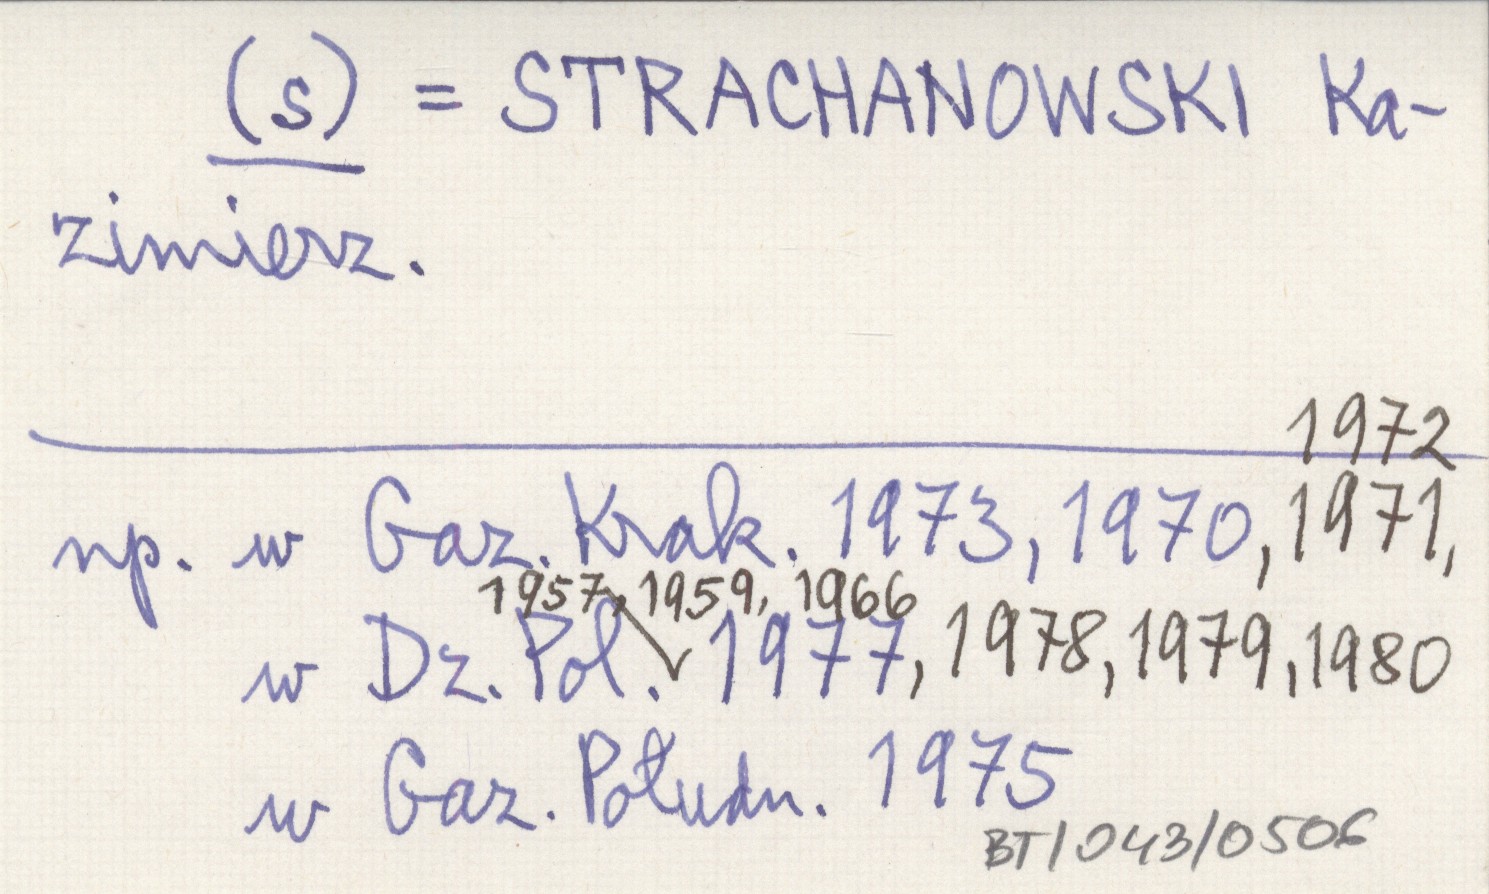 (s) = STRACHANOWSKI Ka-
zimierz.
1972
np. w Gaz. Krak. 1973, 1970, 1971,
1957, 1959, 1966
w Dz. Pol. 1977, 1978, 1979, 1980
w Gaz. Połudn. 1975
BT/043/0506